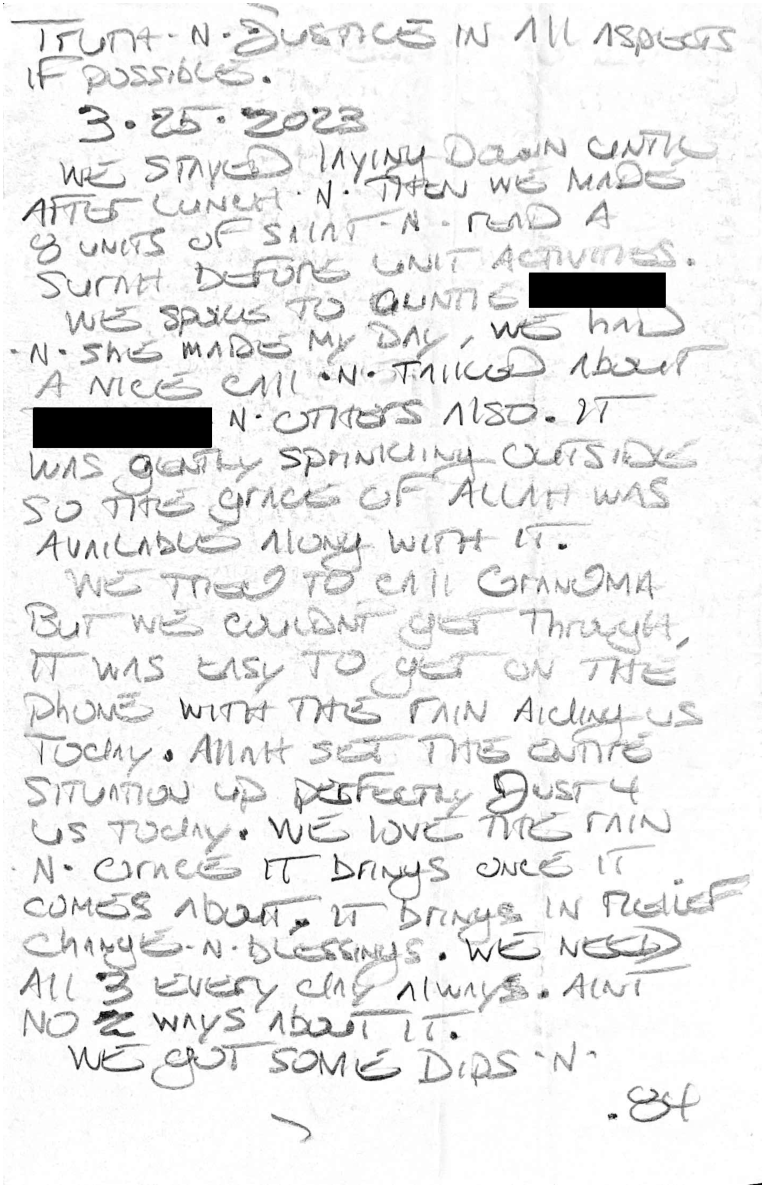 Truth·N·Justice in All Aspects
if possible.
3·25·2023
We stayed laying down until
after lunch·N·then we made
8 units of salat·N·read a
surah before unit activities.
We spoke to Auntie
·N·she made my day, we had
a nice call·N·talked about
N·others also. It
was gently sprinkling outside
so the grace of Allah was
available along with it.
We tried to call Grandma
But we couldnt get through,
it was easy to get on the
phone with the rain aiding us
today. Allah set the entire
situation up perfectly Just 4
us today. We love the rain
·N·grace it brings once it
comes about, it brings in relief
change·N·blessings. We need
all 3 every day always. Aint
no 2 ways about it.
We got some dips·N·
.84